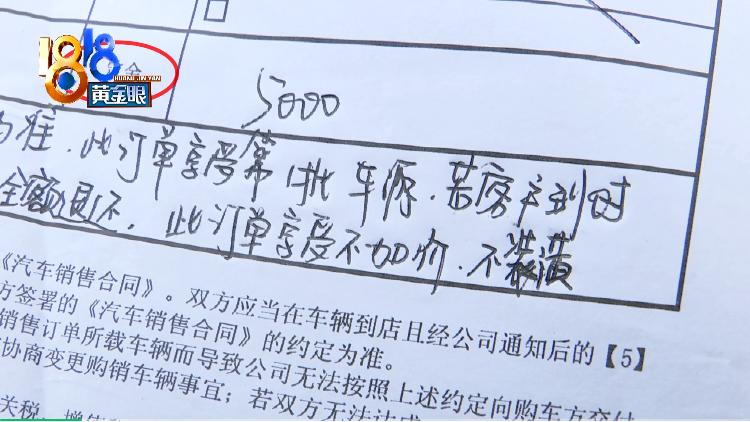 1818
HUANG JIN YAN
黄金眼
金
5000
为准. 此订单享受第1批车源. 若客户到时
全额退还. 此订单享受不加价. 不装潢
《汽车销售合同》。双方应当在车辆到店且经公司通知后的【5】
方签署的《汽车销售合同》的约定为准。
销售订单所载车辆而导致公司无法按照上述约定向购车方交付
协商变更购销车辆事宜；若双方无法达成
关税、增值